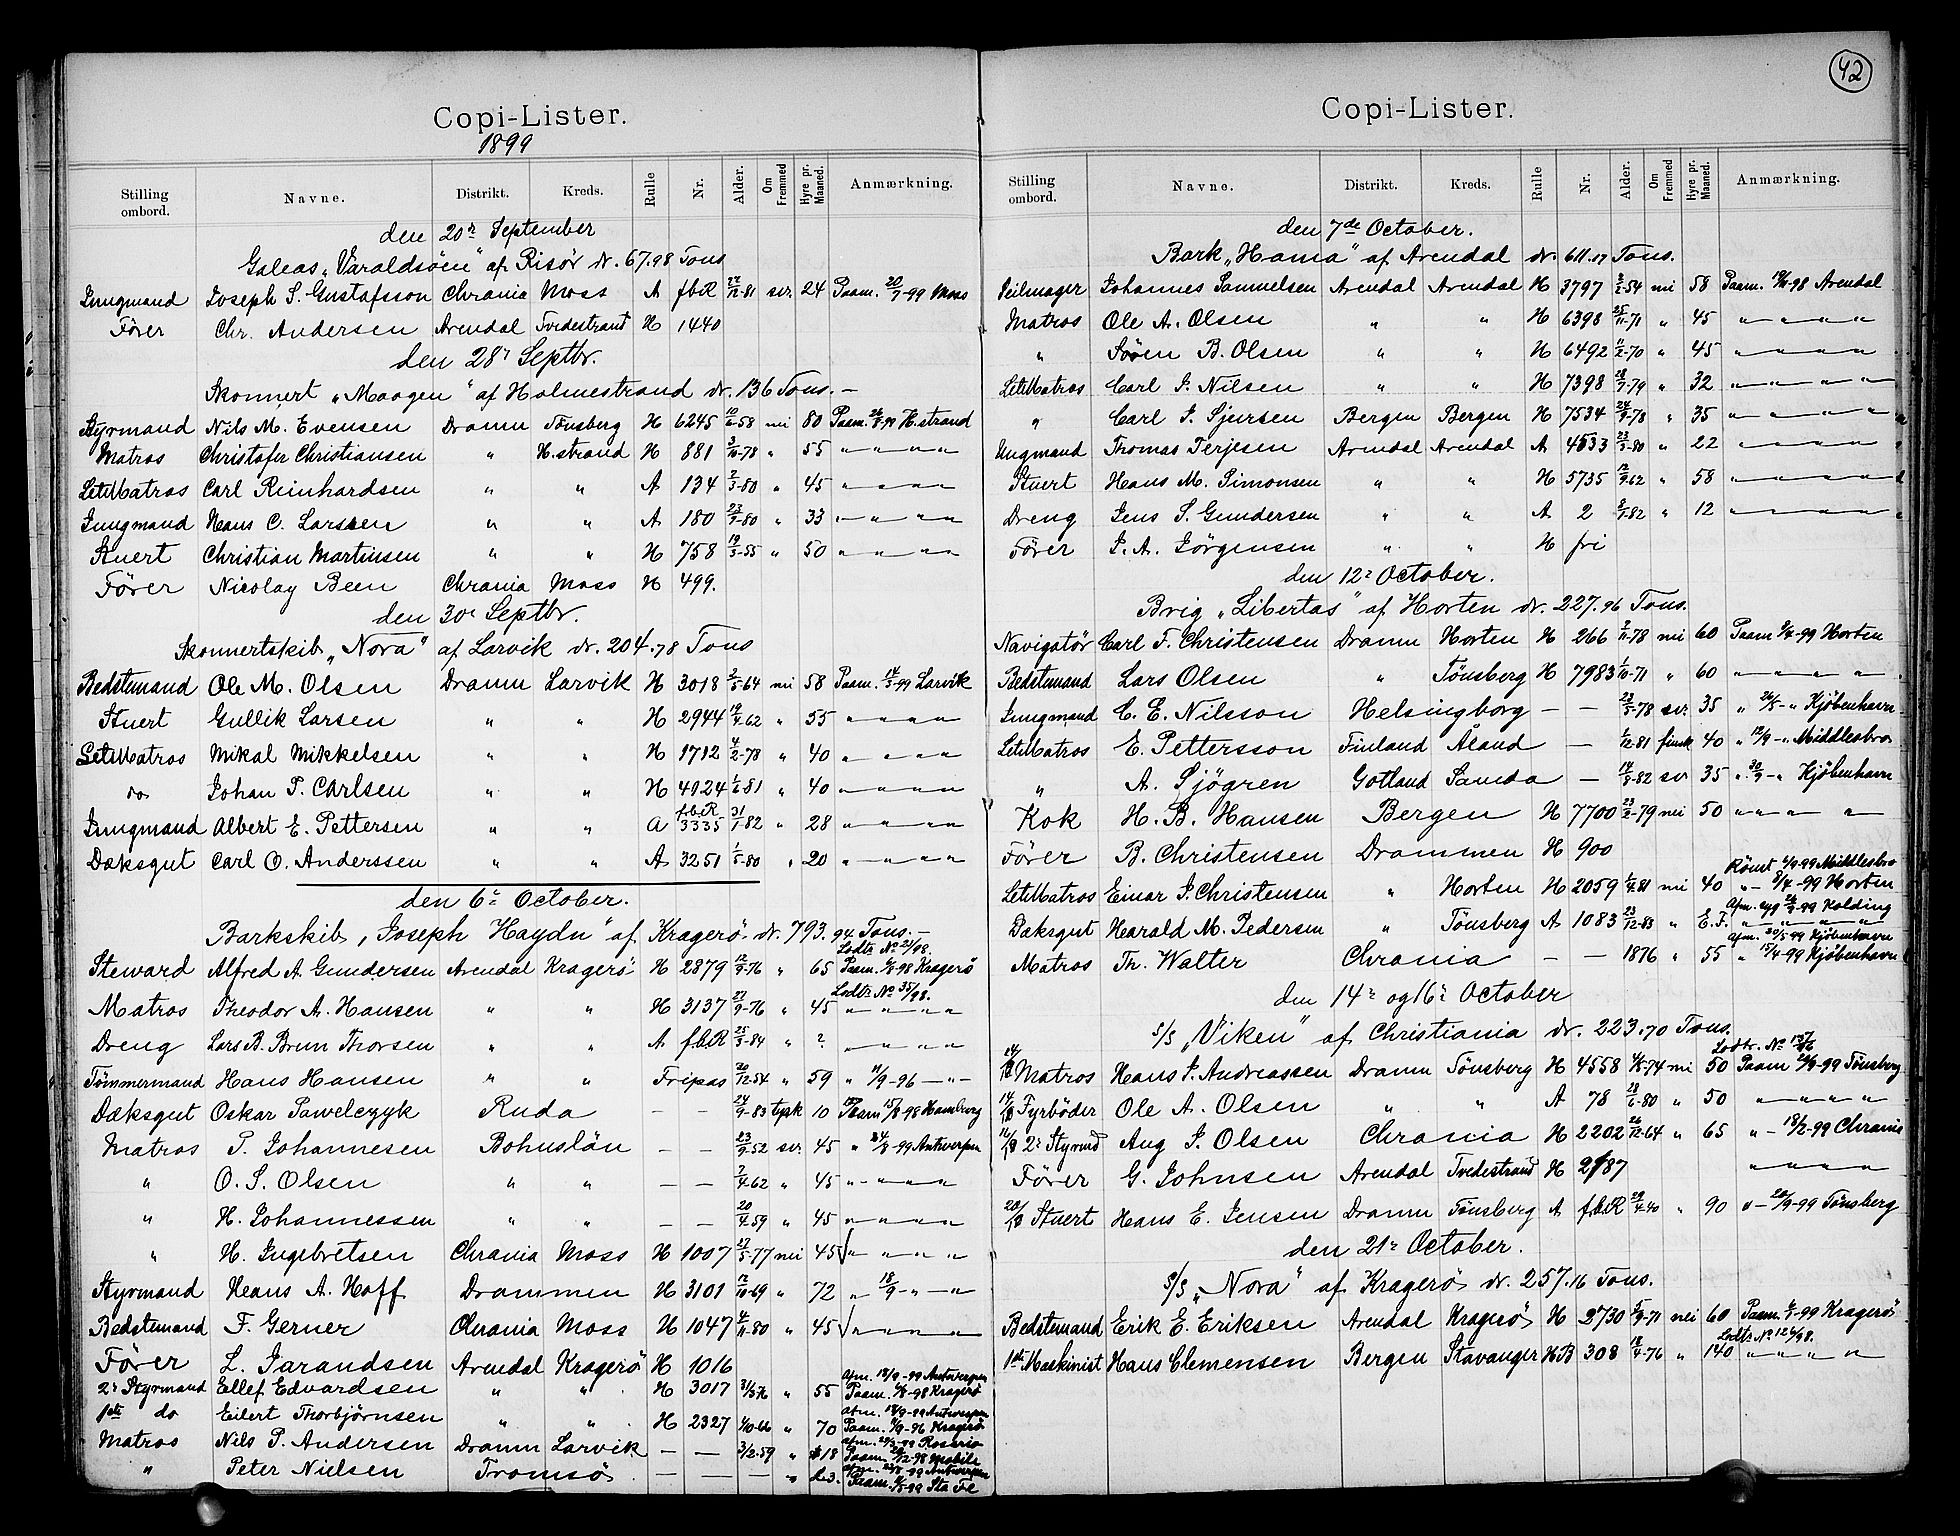 Copi-Lister.
1899
Stilling ombord. Navne. Distrikt. Kreds. Rulle Nr. Alder. Om Fremmed Hyre pr. Maaned. Anmærkning.
den 20r September
Galeas „Varaldsöen" af Risör dr. 67.98 Tons
Jungmand Joseph S. Gustafsson Chrania Moss A fbR 27/12-81 sv. 24 Paam. 20/7-99 Moss
Förer Chr. Andersen Arendal Tvedestrand H 1440
den 28r Septbr.
Skonnert „Maagen" af Holmestrand dr. 136 Tons. —
Styrmand Nils M. Evensen Dramn Tönsberg H 6245 10/6-58 nei 80 Paam. H.strand
Matros Christofer Christiansen „ H.strand H 881 3/10-78 „ 55 „—„—„—„
LetMatros Carl Reinhardsen „ „ A 134 2/3-80 „ 45 „—„—„—„
Jungmand Hans C. Larssen „ „ A 180 23/9-80 „ 33 „—„—„—„
Stuert Christian Martinsen „ „ H 758 19/3-55 „ 50 „—„—„—„
Förer Nicolay Been Chrania Moss H 499.
den 30r Septbr.
Skonnertskib „Nora" af Larvik dr. 204.78 Tons
Bedstemand Ole M. Olsen Dramn Larvik H 3018 2/5-64 nei 58 Paam. 14/3-99 Larvik
Stuert Gullik Larsen „ „ H 2944 19/4-62 „ 55 „—„—„—„
LetMatros Mikal Mikkelsen „ „ H 1712 4/2-78 „ 40 „—„—„—„
do Johan P. Carlsen „ „ H 4124 1/6-81 „ 40 „—„—„—„
Jungmand Albert E. Pettersen „ „ A fbR 3335 31/1-82 „ 28 „—„—„—„
Dæksgut Carl O. Anderssen „ „ A 3251 1/5-80 „ 20 „—„—„—„
den 6r October.
Barkskib „Joseph Haydn" af Kragerö dr. 793.94 Tons. —
Lodts No 21/98.
Steward Alfred A. Gundersen Arendal Kragerö H 2879 12/9-76 „ 65 Paam. 6/8-98 Kragerö
Lodts No 35/98.
Matros Theodor A. Hansen „ „ H 3137 27/9-76 „ 45 „—„—„—„
Dreng Lars B. Brun Thorsen „ „ A f.b.R 25/3-84 „ ? „—„—„—„
Tömmermand Hans Hansen „ „ Fripas 20/12-54 „ 59 „ 11/9-96 —„—
Dæksgut Oskar Pawelczyk Ruda — — 24/9-83 tysk 10 Paam 15/8-98 Hamburg
Matros P. Johannesen Bohuslän — — 23/9-52 sv. 45 „ 24/8-99 Antwerpen
„ O. S. Olsen „ „ — — 7/4-62 „ 45 „—„—„—„
„ H. Johannessen „ „ — — 20/4-59 „ 45 „—„—„—„
„ H. Ingebretsen Chrania Moss H 1007 27/5-77 nei 45 „—„—„—„
Styrmand Hans A. Hoff Drammen H 3101 12/10-69 „ 72 „ 18/9—„—„
Bedstemand F. Gerner Chrania Moss H 1047 4/11-80 „ 45 „—„—„—„
Förer L. Jarandsen Arendal Kragerö H 1016
Afm. 18/9-99 Antwerpen
2r Styrmand Ellef Edvardsen „ „ H 3017 „ 55 Paam. 6/8-98 Kragerö
Afm. 18/9-99 Antwerpen
1ste do Eilert Thorbjörnsen „ „ H 2327 „ 70 Paam. 11/9-96 Kragerö
Matros Nils P. Andersen Dramn Larvik — — 3/2.59 „ $18 Paam. Mobile
Afm. 99 Antwerpen
„ Peter Nielsen Tromsö — — — „ £.3. Paam. 99 Sta Fe
42
Copi-Lister.
Stilling ombord. Navne. Distrikt. Kreds. Rulle Nr. Alder. Om Fremmed Hyre pr. Maaned. Anmærkning.
den 7de October.
Bark „Hama" af Arendal dr. 611.17 Tons.
Seilmager Johannes Samuelsen Arendal Arendal H 3797 2/2-54 nei 58 Paam. 98 Arendal
Matros Ole A. Olsen „ „ H 6398 25/11-71 „ 45 „—„—„—„
„ Sören B. Olsen „ „ H 6492 11/2-70 „ 45 „—„—„—„
LetMatros Carl J. Nilsen „ „ H 7398 28/7-79 „ 32 „—„—„—„
„ Carl J. Sjursen Bergen Bergen H 7534 24/9-78 „ 35 „—„—„—„
Ungmand Thomas Terjesen Arendal Arendal A 4533 23/3-80 „ 22 „—„—„—„
Stuert Hans M. Simonsen „ „ H 5735 12/9-62 „ 58 „—„—„—„
Dreng Jens S. Gundersen „ „ A 2 2/7-82 „ 12 „—„—„—„
Förer J. A. Jörgensen „ „ H fri
den 12r October.
Brig „Libertas" af Horten dr. 227.96 Tons.
Navigatör Carl F. Christensen Dramn Horten H 266 2/11-78 nei 60 Paam 8/4-99 Horten
Bedstemand Lars Olsen „ Tönsberg H 7983 1/10-71 „ 60 „—„—„—„
Jungmand C. E. Nilsson Helsingborg — — 23/5-78 sv. 35 „ 26/5-„ Kjöbenhavn
LetMatros E. Pettersson Finland Åland — 1/12-81 finsk 40 „ 12/9-„ Middlesbro
„ A. Sjögren Gotland Sanda — 14/8-82 sv 35 „ 30/9-„ Kjöbenhavn
Kok H. B. Hansen Bergen H 7700 23/2-79 nei 50 „—„—„
Förer B. Christensen Drammen H 900
Römt 6/9-99 Middlesbro
LetMatros Einar J. Christensen „ Horten H 2059 1/4-81 nei 40 „— 8/4-99 Horten
Afm. syg 24/9-99 Kolding
Dæksgut Harald M. Pedersen „ Tönsberg A 1083 23/12-83 „ E.F. „—„—„—„
Afm. 20/5-99 Kjöbenhavn
Matros Th. Walter Chrania — — 1876 „ 55 „ 15/4-99 Kjöbenhavn
den 14r og 16r October
S/S „Viken" af Christiania dr. 223.70 Tons.
14/10 Matros Hans J. Andreassen Dramn Tönsberg H 4558 4/5-74 nei 50 Paam 99 Tönsberg
14/10 Fyrböder Ole A. Olsen „ „ A 78 28/6-80 „ 50 „—„—„—„
16/10 2r Styrmd Aug J. Olsen Chrania H 2202 26/12-64 „ 65 „— 18/2-99 Chrania
Förer G. Johnsen Arendal Tvedestrand H 2187 „—„—„—„
20/10 Stuert Hans E. Jensen Dramn Tönsberg A f.b.R 29/4-40 „ 90 „— 20/9-99 Tönsberg
den 21r October.
S/S „Nora" af Kragerö dr. 257.16 Tons.
Bedstemand Erik E. Eriksen Arendal Kragerö H 2730 5/9-71 nei 60 Paam. 99 Kragerö
1ste Maskinist Hans Clemensen Bergen Stavanger HB 308 18/4-76 „ 140 „—„—„—„